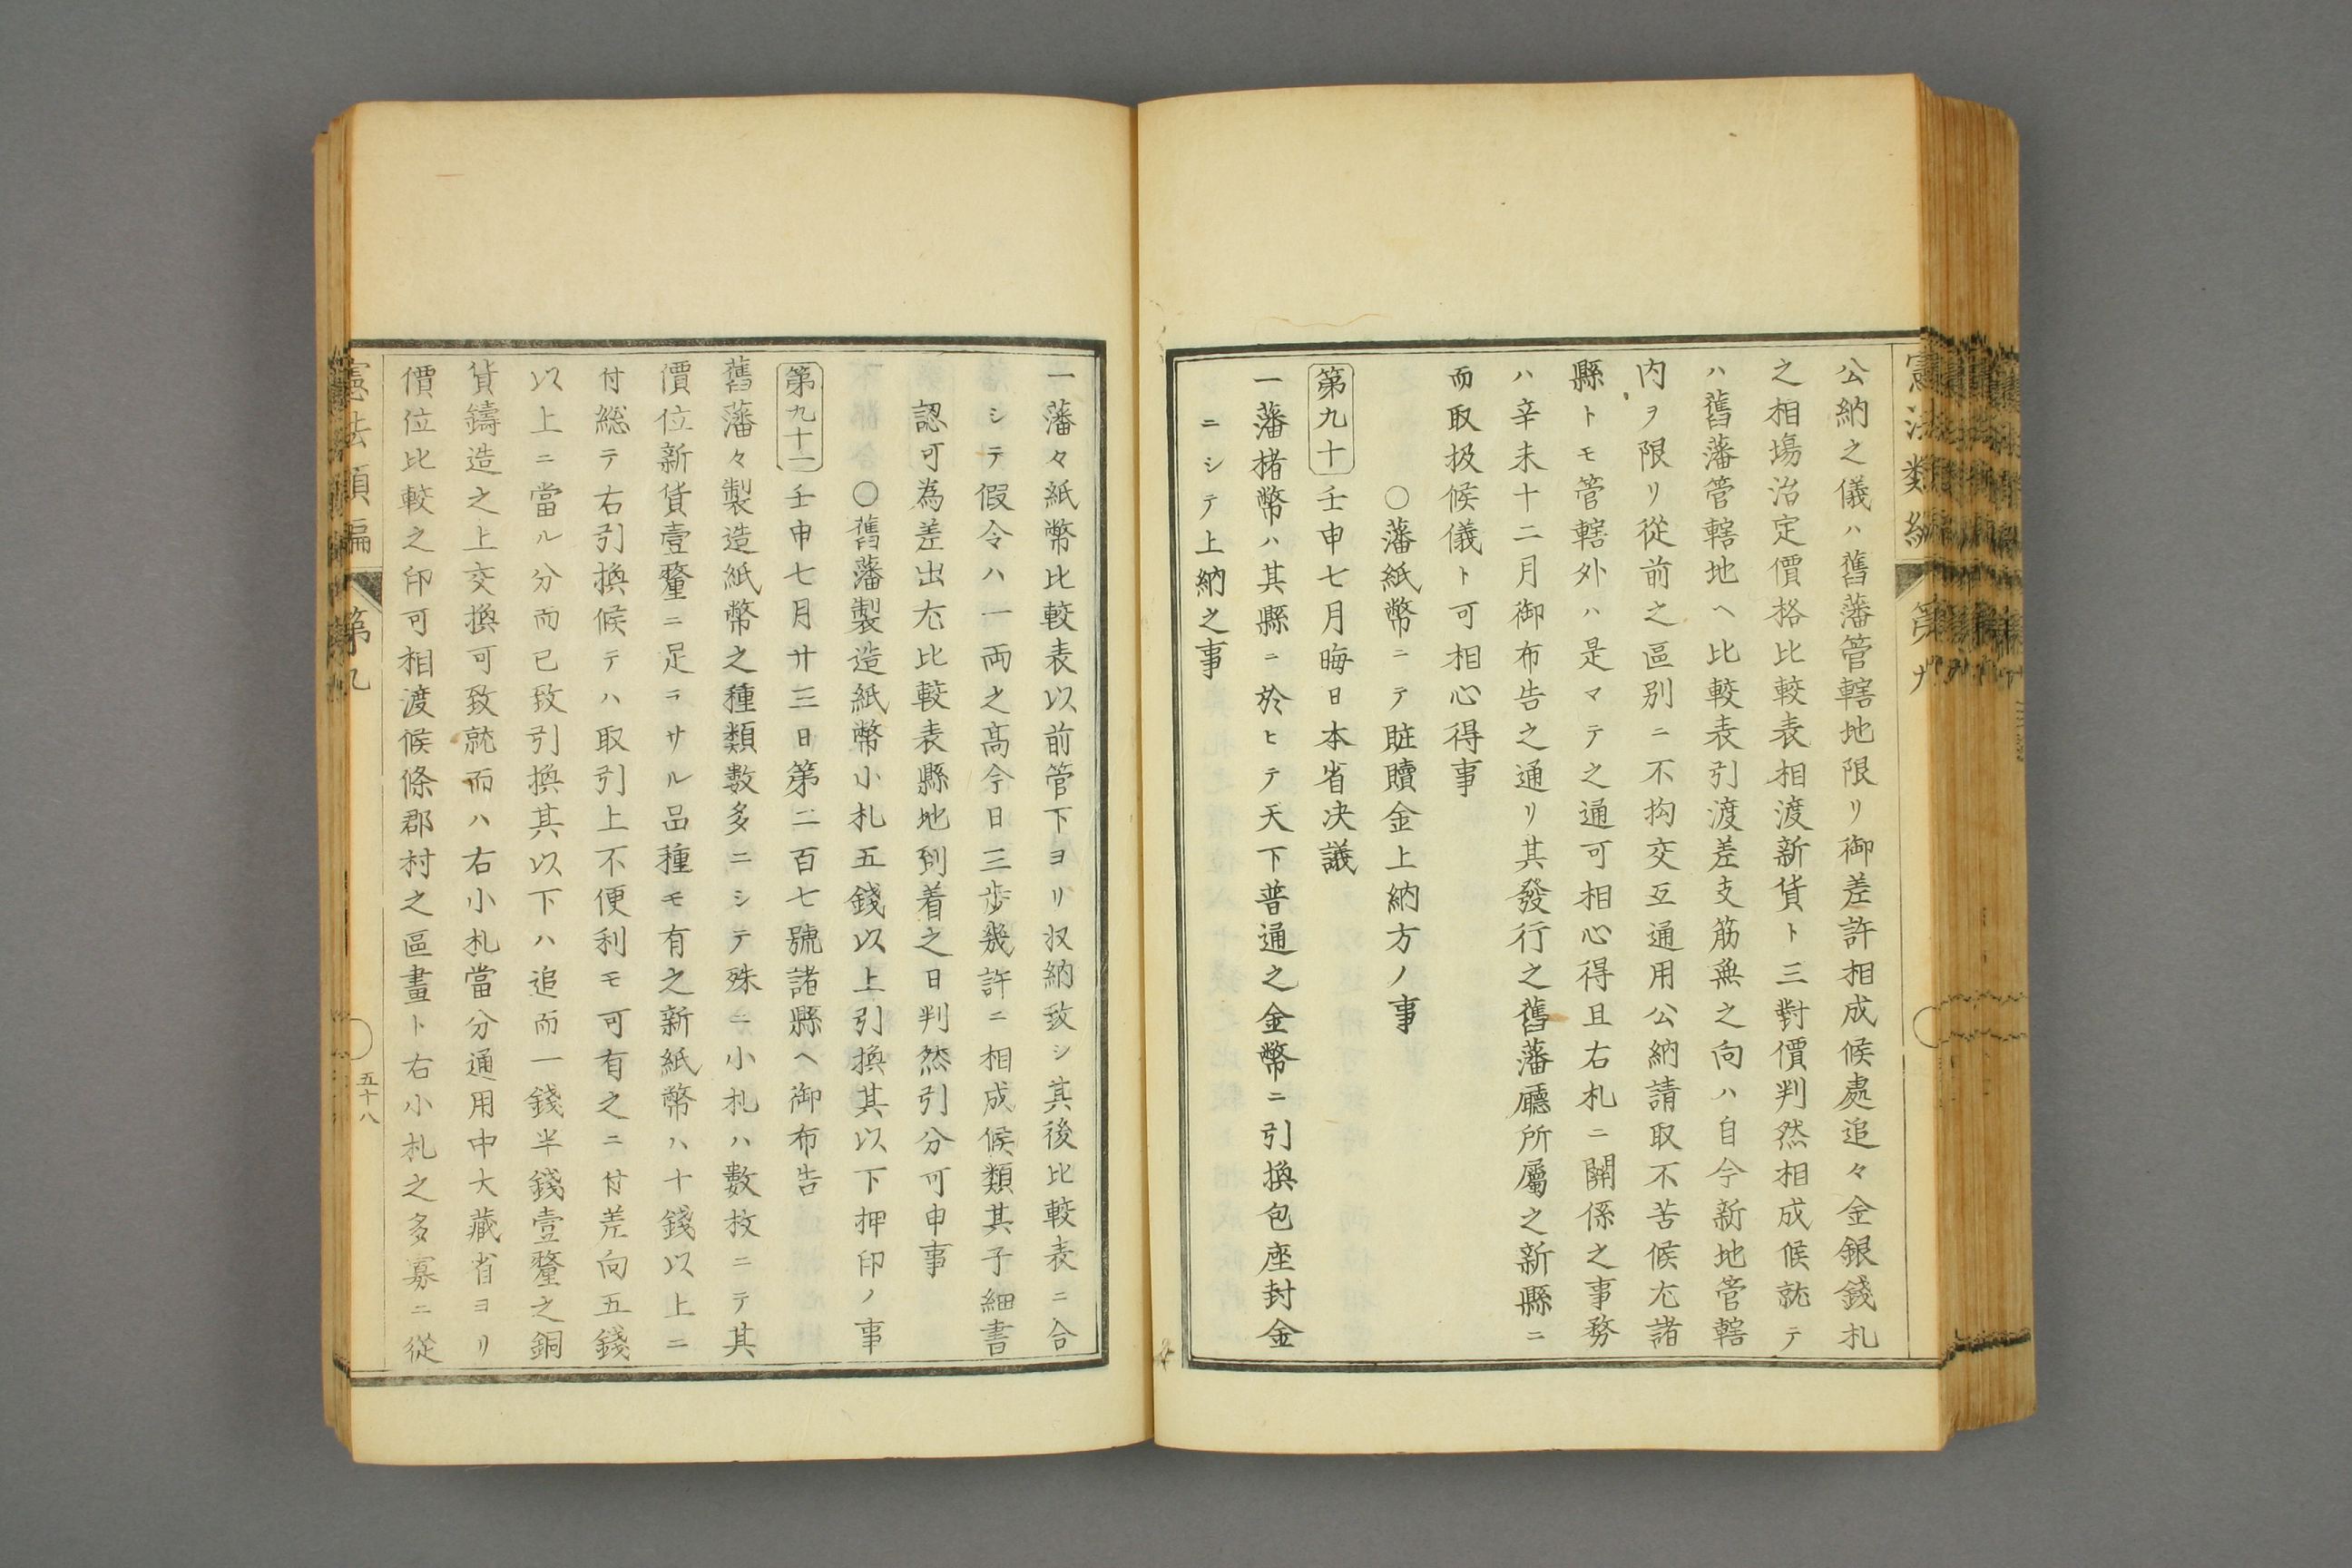 公納之儀ハ舊藩管轄地限リ御差許相成候處追々金銀錢札
之相塲治定價格比較表相渡新貨ト三對價判然相成候就テ
ハ舊藩管轄地ヘ比較表引渡差支筋無之向ハ自今新地管轄
内ヲ限リ從前之區別ニ不拘交互通用公納請取不苦候尤諸
縣トモ管轄外ハ是マテ之通可相心得且右札ニ關係之事務
ハ辛未十二月御布告之通リ其發行之舊藩廳所屬之新縣ニ
而取扱候儀ト可相心得事
〇藩紙幣ニテ賍贖金上納方ノ事
第九十 壬申七月晦日本省決議
一藩楮幣ハ其縣ニ於ヒテ天下普通之金幣ニ引換包座封金
ニシテ上納之事
一藩々紙幣比較表以前管下ヨリ収納致シ其後比較表ニ合
シテ假令ハ一両之髙今日三歩幾許ニ相成候類其子細書
認可為差出尤比較表縣地到着之日判然引分可申事
〇舊藩製造紙幣小札五錢以上引換其以下押印ノ事
第九十一 壬申七月廿三日第二百七號諸縣ヘ御布告
舊藩々製造紙幣之種類數多ニシテ殊ニ小札ハ數枚ニテ其
價位新貨壹釐ニ足ラサル品種モ有之新紙幣ハ十錢以上ニ
付総テ右引換候テハ取引上不便利モ可有之ニ付差向五錢
以上ニ當ル分而已致引換其以下ハ追而一錢半錢壹釐之銅
貨鑄造之上交換可致就而ハ右小札當分通用中大藏省ヨリ
價位比較之印可相渡候條郡村之區畫ト右小札之多寡ニ從
憲法類編 第九
五十八